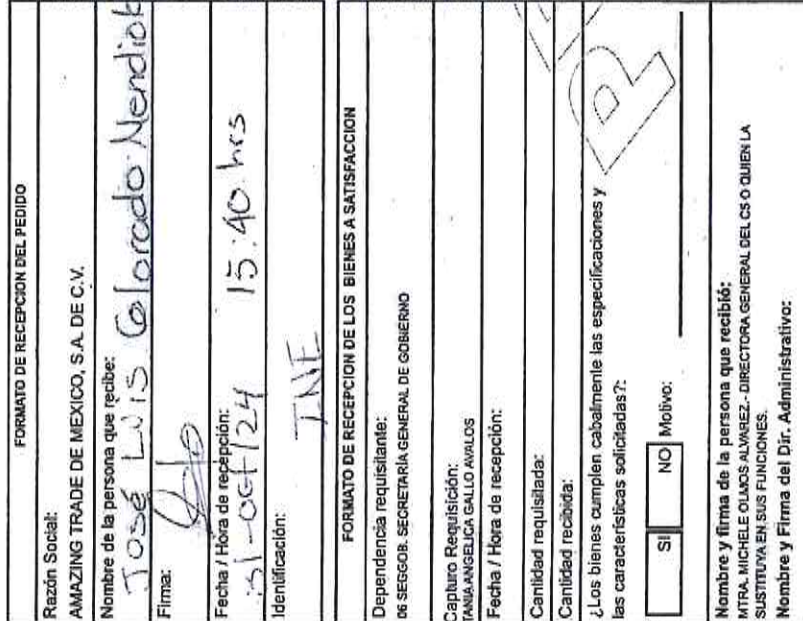 FORMATO DE RECEPCION DEL PEDIDO
Razón Social:
AMAZING TRADE DE MEXICO, S.A. DE C.V.
Nombre de la persona que recibe:
José Luis Colorado Mendiok
Firma:
Fecha / Hora de recepción:
31-oct/24 15:40 hrs
Identificación:
INE
FORMATO DE RECEPCION DE LOS BIENES A SATISFACCION
Dependencia requisitante:
06 SEGGOB. SECRETARÍA GENERAL DE GOBIERNO
Capturo Requisición:
TANIA ANGELICA GALLO AVALOS
Fecha / Hora de recepción:
Cantidad requisitada:
Cantidad recibida:
¿Los bienes cumplen cabalmente las especificaciones y
las características solicitadas?:
SI NO Motivo:
Nombre y firma de la persona que recibió:
MTRA. MICHELE OLMOS ALVAREZ.- DIRECTORA GENERAL DEL CS O QUIEN LA
SUSTITUYA EN SUS FUNCIONES.
Nombre y Firma del Dir. Administrativo: